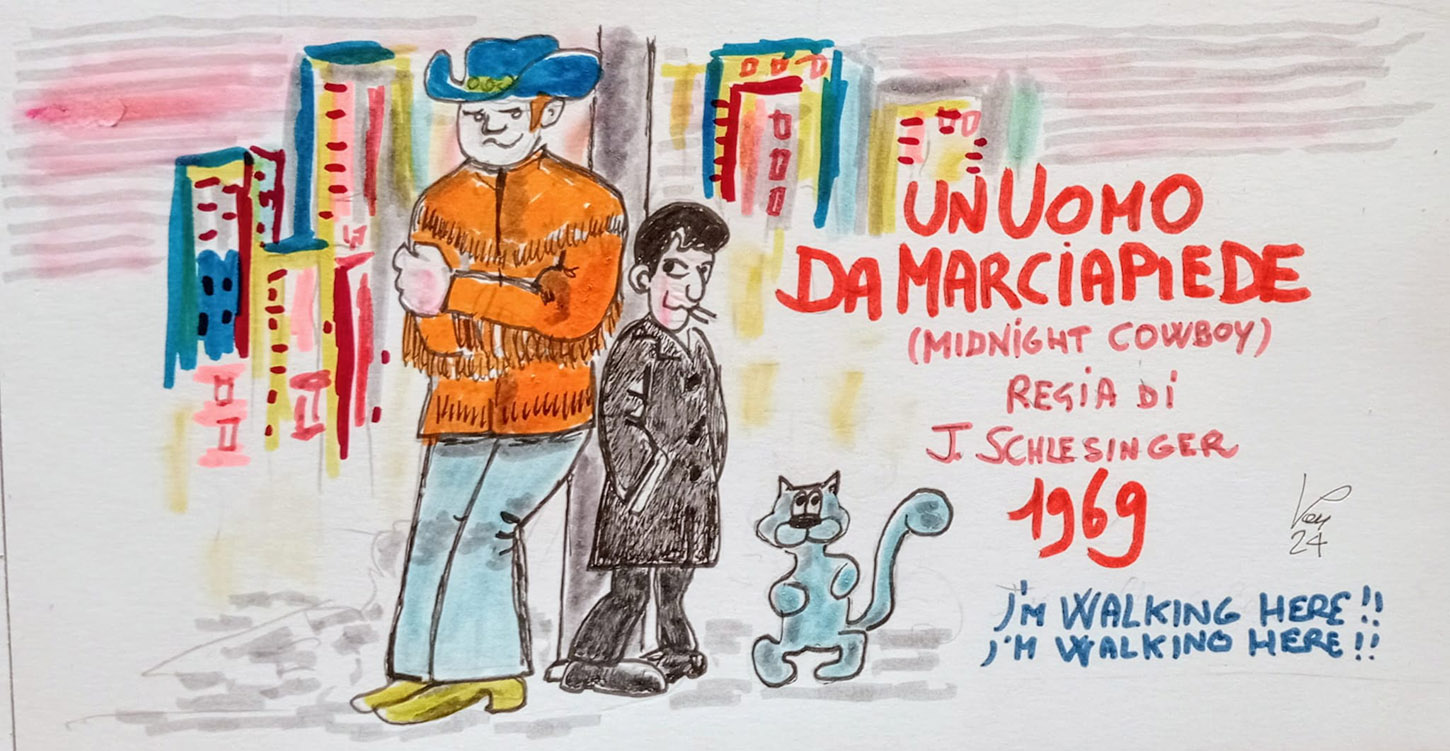 UN UOMO
DA MARCIAPIEDE
(MIDNIGHT COWBOY)
REGIA DI
J. SCHLESINGER
1969
24
I'M WALKING HERE!!
I'M WALKING HERE!!